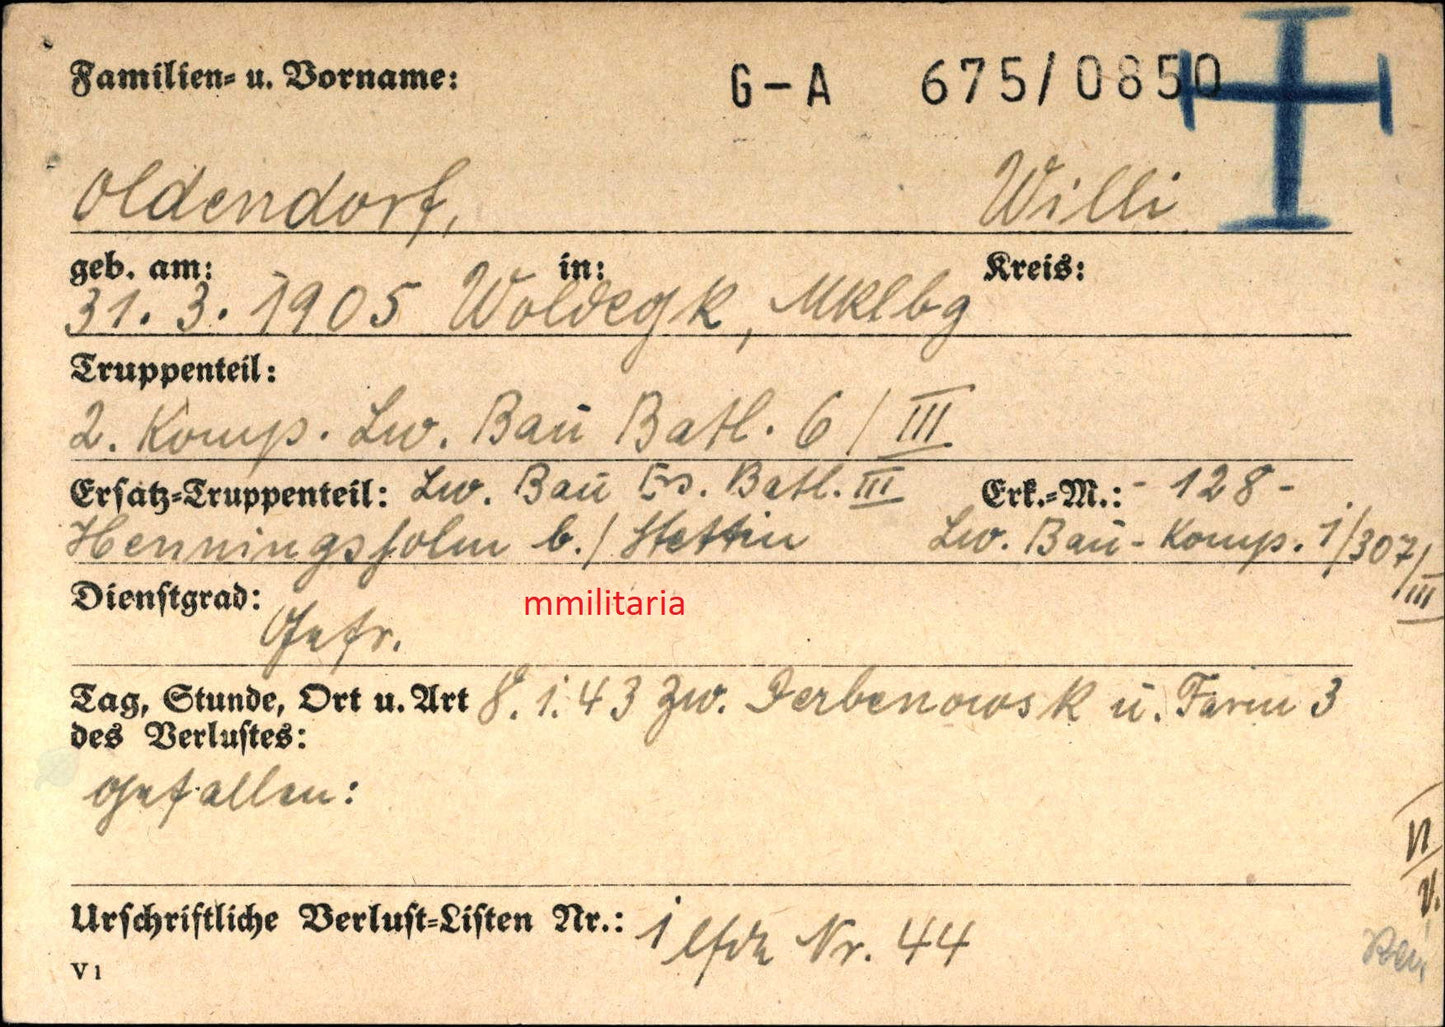 Familien- u. Vorname: G-A 675/0850
Oldendorf, Willi
geb. am: in: Kreis:
31. 3. 1905 Woldegk, Mklbg
Truppenteil:
2. Komp. Lw. Bau Batl. 6/III
Ersatz-Truppenteil: Lw. Bau Ers. Batl. III Erk.-M.: - 128 -
Henningsholm b./Stettin Lw. Bau-Komp. 1/307/III
Dienstgrad: mmilitaria
Gefr.
Tag, Stunde, Ort u. Art 8.1.43 zw. Derbenowsk u. Farm 3
des Verlustes:
gefallen:
VI
V.
Urschriftliche Verlust-Listen Nr.: 1 lfde Nr. 44
V1